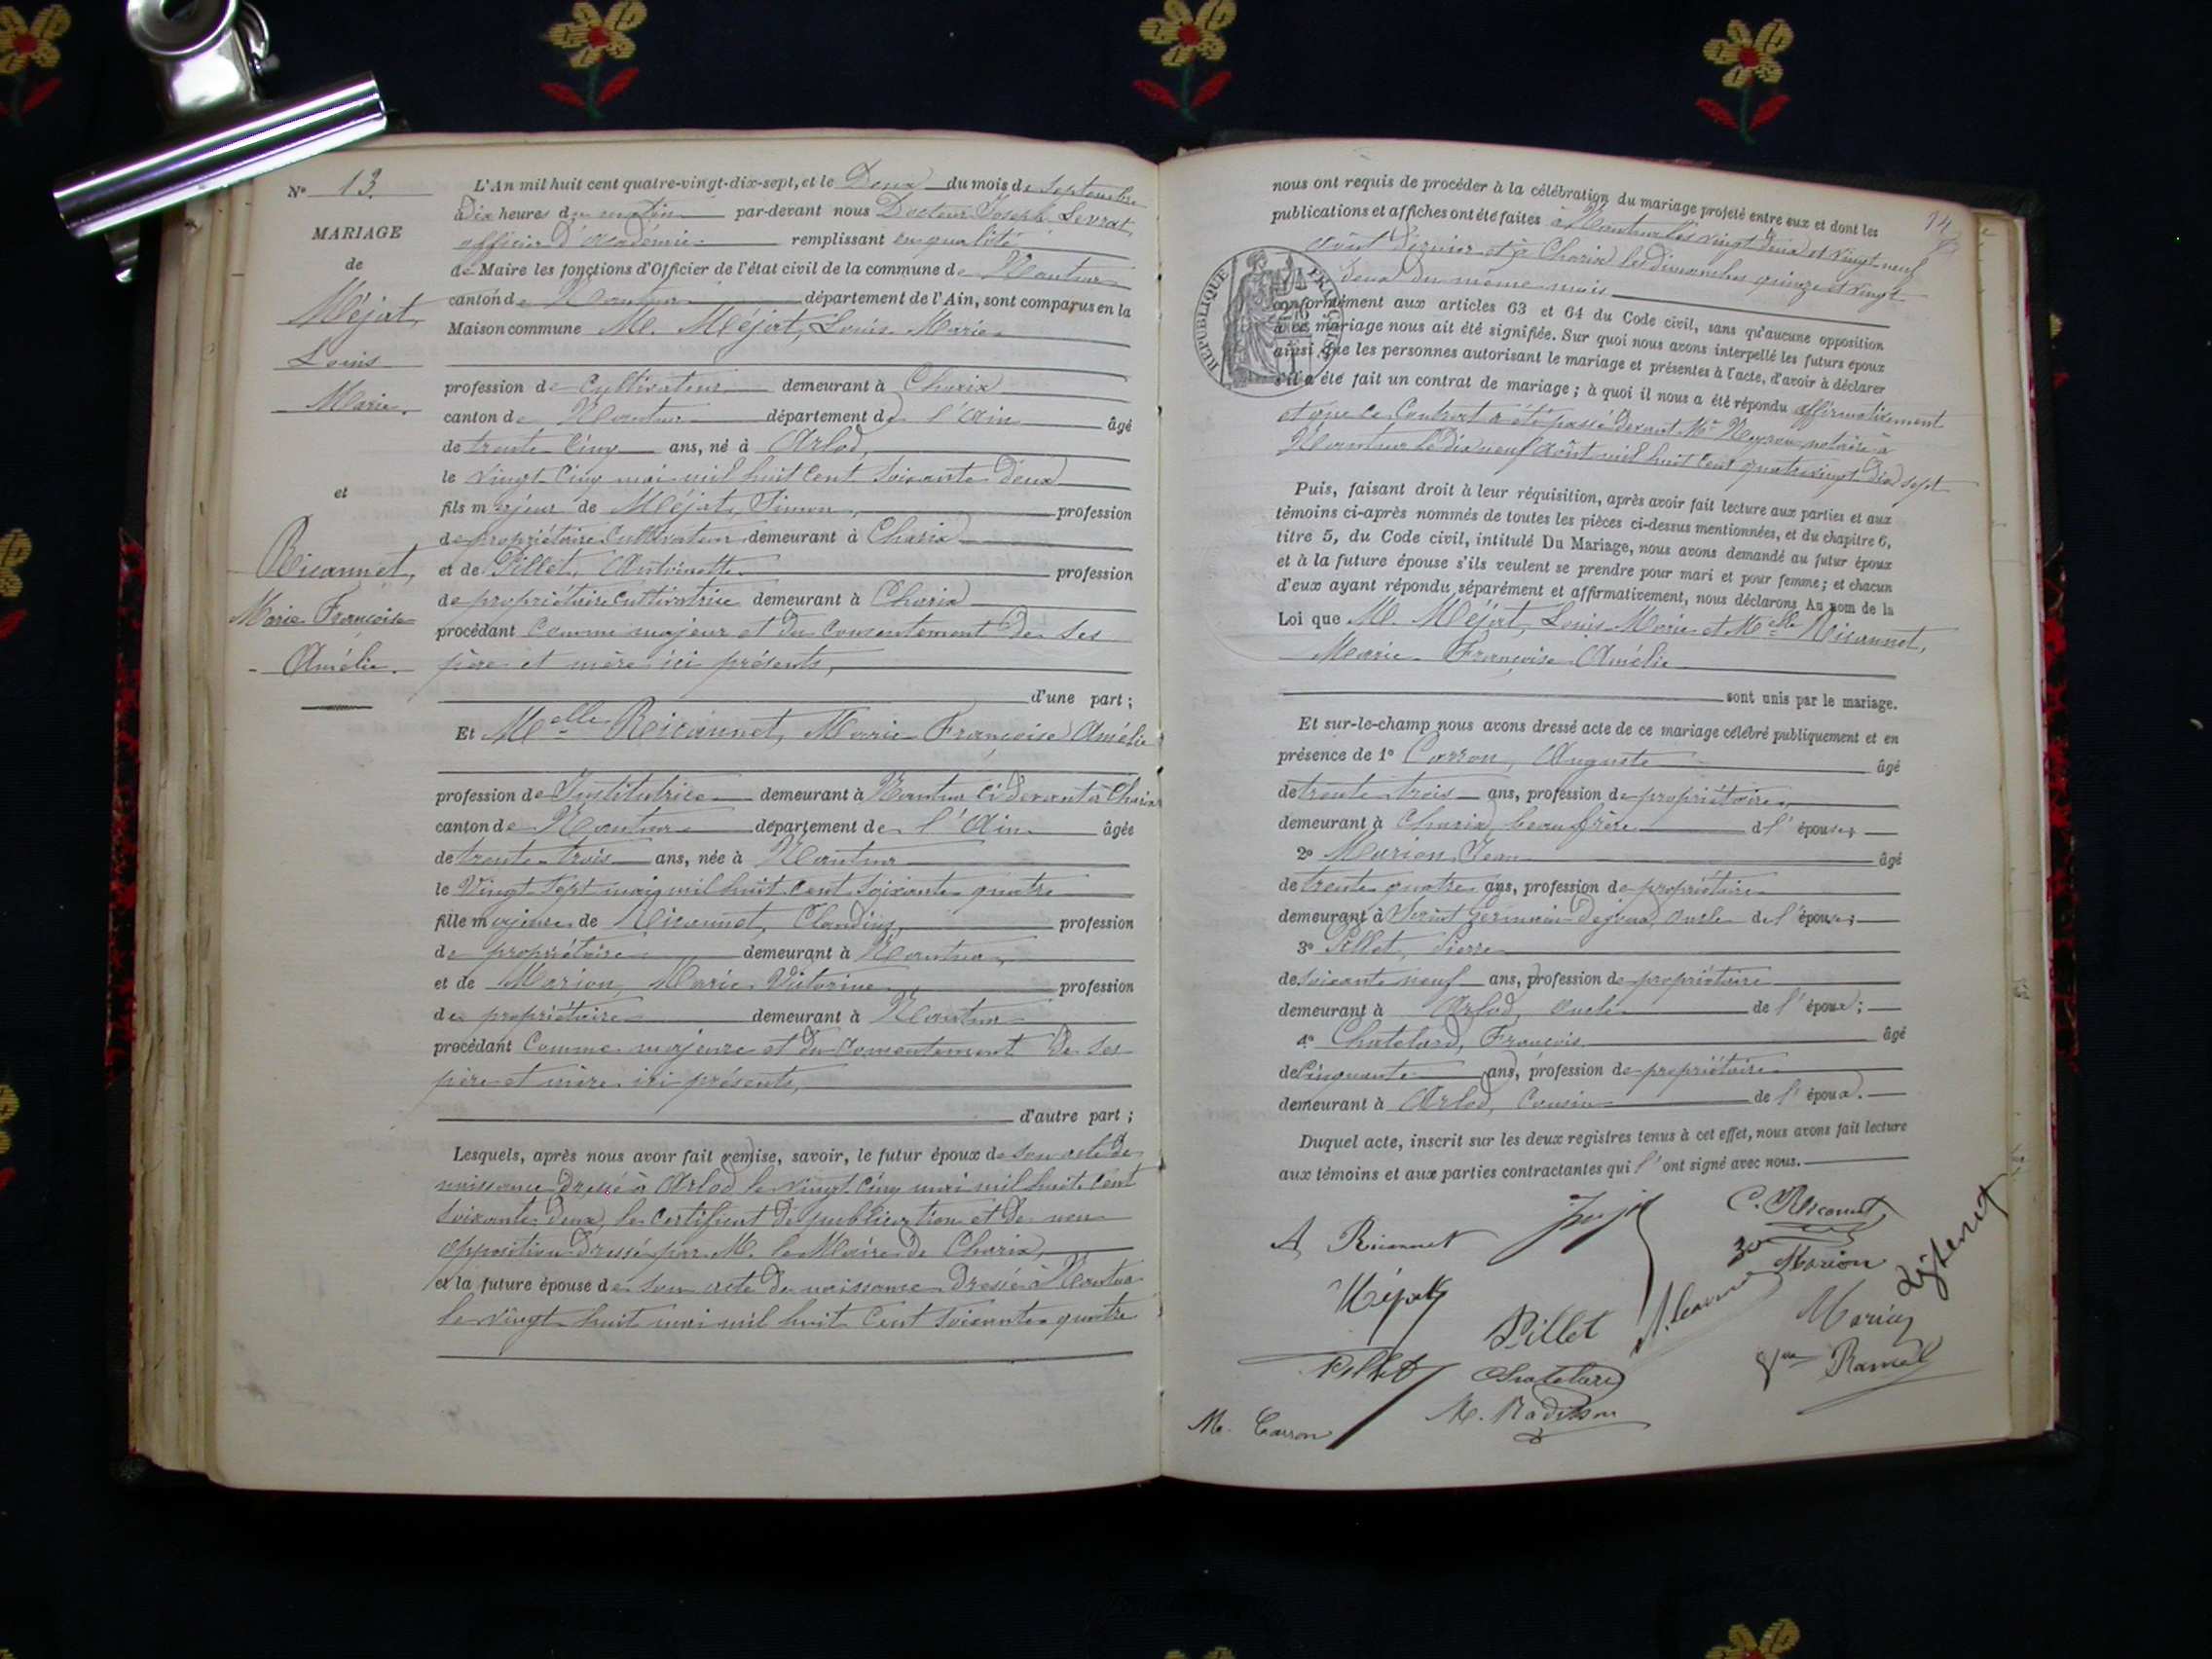 N° 13
MARIAGE
de
Méjat,
Louis
Marie.
et
Ricannet,
Marie Françoise
Amélie.
L'An mil huit cent quatre-vingt-dix-sept, et le Deux du mois de Septembre
à Dix heures du matin par-devant nous Docteur Joseph Levrat,
officier d'Académie remplissant en qualité
de Maire les fonctions d'Officier de l'état civil de la commune de Nantua
canton de Nantua département de l'Ain, sont comparus en la
Maison commune M. Méjat, Louis Marie
profession de Cultivateur demeurant à Charix
canton de Nantua département de l'Ain âgé
de trente cinq ans, né à Arlod,
le vingt cinq mai mil huit cent soixante deux
fils majeur de Méjat, Simon, profession
de propriétaire Cultivateur demeurant à Charix
et de Pillet, Antoinette profession
de propriétaire Cultivatrice demeurant à Charix
procédant Comme majeur et du consentement de ses
père et mère ici présents,
d'une part;
Et Melle Ricannet, Marie Françoise Amélie
profession de Institutrice demeurant à Nantua ci devant à Charix
canton de Nantua département de l'Ain âgée
de trente-trois ans, née à Nantua
le Vingt sept mai mil huit cent soixante quatre
fille majeure de Ricannet, Claudius, profession
de propriétaire demeurant à Nantua,
et de Marion, Marie Victorine profession
de propriétaire demeurant à Nantua
procédant Comme majeure et du consentement de ses
père et mère ici présents,
d'autre part;
Lesquels, après nous avoir fait remise, savoir, le futur époux de son acte de
naissance dressé à Arlod le vingt cinq mai mil huit cent
soixante deux, le certificat de publication et de non
opposition dressé par M. le Maire de Charix,
et la future épouse de son acte de naissance dressé à Nantua
le vingt huit mai mil huit cent soixante quatre
14
nous ont requis de procéder à la célébration du mariage projeté entre eux et dont les
publications et affiches ont été faites à Nantua les vingt deux et vingt neuf
Août dernier et à Charix les dimanches quinze et vingt
deux du même mois
RÉPUBLIQUE FRANÇAISE
conformément aux articles 63 et 64 du Code civil, sans qu'aucune opposition
à ce mariage nous ait été signifiée. Sur quoi nous avons interpellé les futurs époux
ainsi que les personnes autorisant le mariage et présentes à l'acte, d'avoir à déclarer
s'il a été fait un contrat de mariage; à quoi il nous a été répondu affirmativement
et que ce Contrat a été passé devant Me Neyron notaire à
Nantua le dix neuf Août mil huit cent quatre vingt Dix sept
Puis, faisant droit à leur réquisition, après avoir fait lecture aux parties et aux
témoins ci-après nommés de toutes les pièces ci-dessus mentionnées, et du chapitre 6,
titre 5, du Code civil, intitulé Du Mariage, nous avons demandé au futur époux
et à la future épouse s'ils veulent se prendre pour mari et pour femme; et chacun
d'eux ayant répondu séparément et affirmativement, nous déclarons Au nom de la
Loi que M. Méjat, Louis Marie et Melle Ricannet,
Marie Françoise Amélie
sont unis par le mariage.
Et sur-le-champ nous avons dressé acte de ce mariage célébré publiquement et en
présence de 1° Carron, Auguste âgé
de trente trois ans, profession de propriétaire
demeurant à Charix, beau frère de l'épouse;
2° Marion, Jean âgé
de trente quatre ans, profession de propriétaire
demeurant à Saint Germain de Joux, oncle de l'épouse;
3° Pillet, Pierre
de soixante neuf ans, profession de propriétaire
demeurant à Arlod, oncle de l'époux;
4° Chatelard, François âgé
de Cinquante ans, profession de propriétaire
demeurant à Arlod, Cousin de l'époux.
Duquel acte, inscrit sur les deux registres tenus à cet effet, nous avons fait lecture
aux témoins et aux parties contractantes qui l'ont signé avec nous.
A Ricannet C. Ricannet
Marion
Méjat
Pillet
Pillet Chatelard Ramel
M. Carron M. Radisson